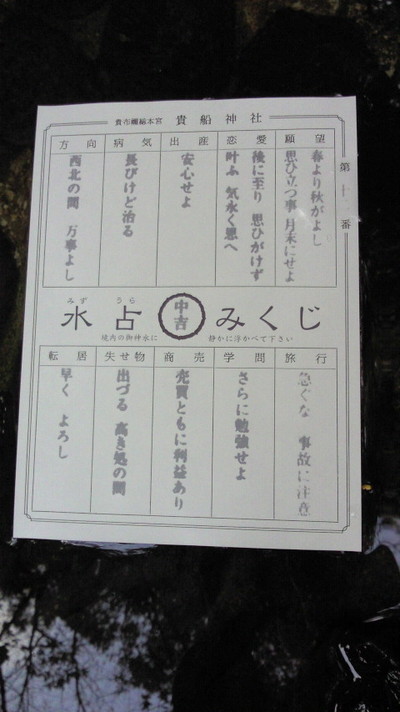 貴布禰総本宮 貴船神社
第十番
願望
春より秋がよし
思ひ立つ事 月末にせよ
恋愛
後に至り 思ひがけず
叶ふ 気永く思へ
出産
安心せよ
病気
長びけど治る
方向
西北の間 万事よし
みず うら
水占 中吉 みくじ
境内の御神水に 静かに浮かべて下さい
旅行
急ぐな 事故に注意
学問
さらに勉強せよ
商売
売買ともに利益あり
失せ物
出づる 高き処の間
転居
早く よろし